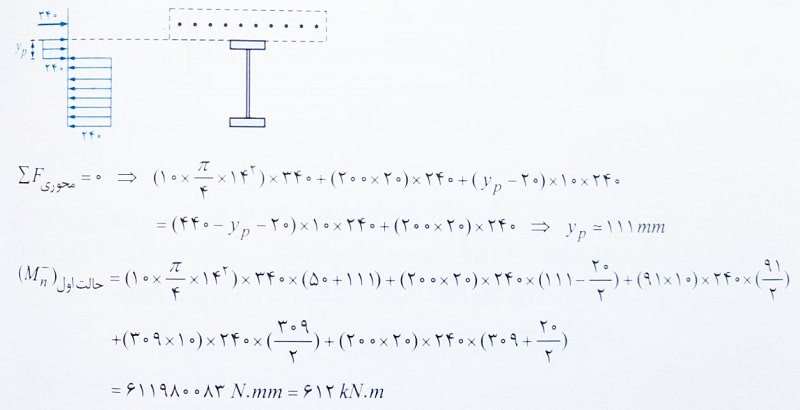 ۳۴۰
y_p
۲۴۰
۲۴۰
∑F محوری = ۰ ⇒ (۱۰×π/۴×۱۴^۲)×۳۴۰+(۲۰۰×۲۰)×۲۴۰+(y_p−۲۰)×۱۰×۲۴۰
=(۴۴۰−y_p−۲۰)×۱۰×۲۴۰+(۲۰۰×۲۰)×۲۴۰ ⇒ y_p≃۱۱۱mm
(M_n^−)حالت اول =(۱۰×π/۴×۱۴^۲)×۳۴۰×(۵۰+۱۱۱)+(۲۰۰×۲۰)×۲۴۰×(۱۱۱−۲۰/۲)+(۹۱×۱۰)×۲۴۰×(۹۱/۲)
+(۳۰۹×۱۰)×۲۴۰×(۳۰۹/۲)+(۲۰۰×۲۰)×۲۴۰×(۳۰۹+۲۰/۲)
=۶۱۱۹۸۰۰۸۳ N.mm=۶۱۲ kN.m